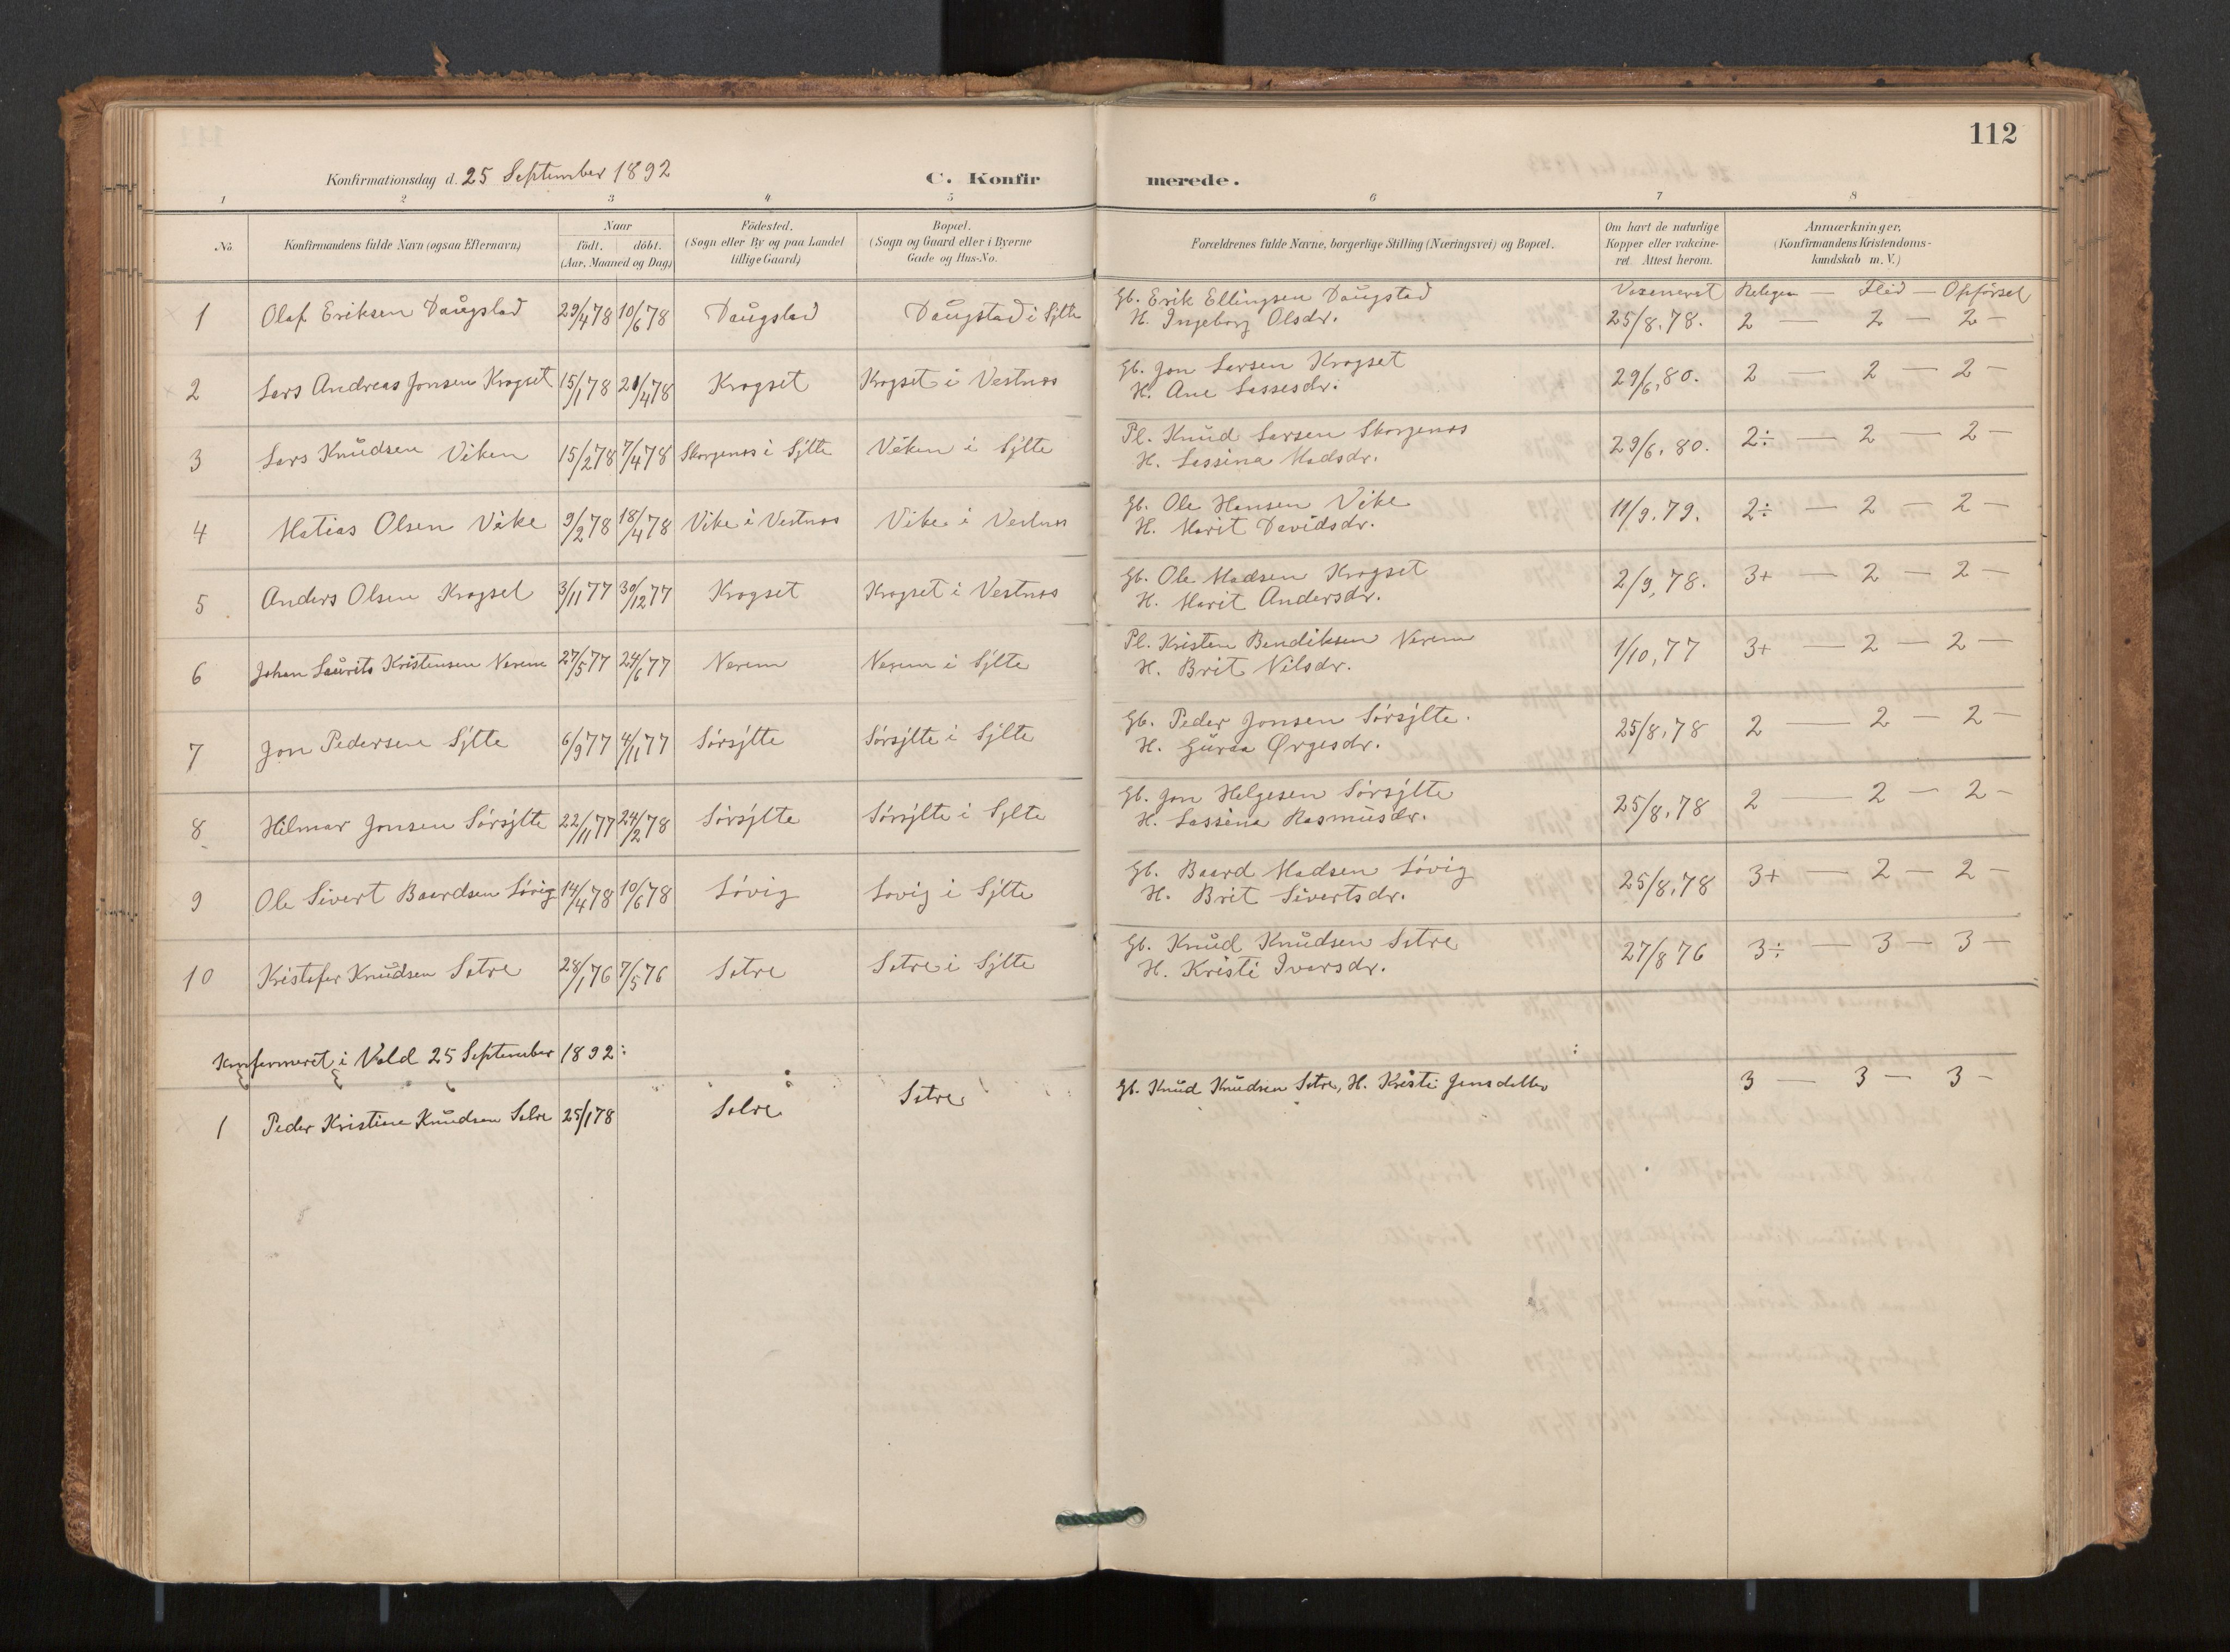 112
Konfirmationsdag d. 25 September 1892 C. Konfir merede.
1 2 3 4 5 6 7 8
No. Konfirmandens fulde Navn (ogsaa Efternavn) Naar født. døbt. (Aar, Maaned og Dag) Födested. (Sogn eller By og paa Landet tillige Gaard) Bopæl. (Sogn og Gaard eller i Byerne Gade og Hus-No. Forældrenes fulde Navne, borgerlige Stilling (Næringsvei) og Bopæl. Om havt de naturlige Kopper eller vakcineret. Attest herom. Anmærkninger, (Konfirmandens Kristendomskundskab m. V.)
Gb. Erik Ellingsen Daugstad Vaxeneret Religion — Flid — Opførsel
1 Olaf Eriksen Daugstad 29/4 78 10/6 78 Daugstad Daugstad i Sylte H. Ingeborg Olsdr. 25/8. 78. 2 — 2 — 2 —
Gb. Jon Larsen Krogset
2 Lars Andreas Jonsen Krogset 15/1 78 21/4 78 Krogset Krogset i Vestnes H. Ane Lassesdr. 29/6, 80. 2 — 2 — 2 —
Pl. Knud Larsen Skorgenes
3 Lars Knudsen Viken 15/2 78 7/4 78 Skorgenes i Sylte Viken i Sylte H. Lassina Madsdr. 29/6. 80. 2÷ — 2 — 2 —
Gb. Ole Hansen Vike
4 Matias Olsen Vike 9/2 78 18/4 78 Vike i Vestnes Vike i Vestnes H. Marit Davidsdr. 11/9. 79. 2÷ — 2 — 2 —
Gb. Ole Madsen Krogset
5 Anders Olsen Krogset 3/11 77 30/12 77 Krogset Krogset i Vestnes H. Marit Andersdr. 2/9, 78. 3+ — 2 — 2 —
Pl. Kristen Bendiksen Nerem
6 Johan Laurits Kristensen Nerem 27/5 77 24/6 77 Nerem Nerem i Sylte H. Brit Nilsdr. 1/10, 77 3+ — 2 — 2 —
Gb. Peder Jonsen Sørsylte.
7 Jon Pedersen Sylte 6/9 77 4/11 77 Sørsylte Sørsylte i Sylte H. Guraa Ørgesdr. 25/8, 78 2 — 2 — 2 —
Gb. Jon Helgesen Sørsylte
8 Hilmar Jonsen Sørsylte 22/11 77 24/2 78 Sørsylte Sørsylte i Sylte H. Lassina Rasmusdr. 25/8, 78 2 — 2 — 2 —
Gb. Baard Madsen Søvig
9 Ole Sivert Baardsen Søvig 14/4 78 10/6 78 Søvig Søvig i Sylte H. Brit Sivertsdr. 25/8, 78 3+ — 2 — 2 —
Gb. Knud Knudsen Setre
10 Kristofer Knudsen Setre 28/1 76 7/5 76 Setre Setre i Sylte H. Kristi Iversdr. 27/8 76 3÷ — 3 — 3 —
Konfirmeret i Vold 25 September 1892:
1 Peder Kristine Knudsen Setre 25/1 78 Setre Setre Gb. Knud Knudsen Setre, H. Kristi Jensdatter 3 — 3 — 3 —